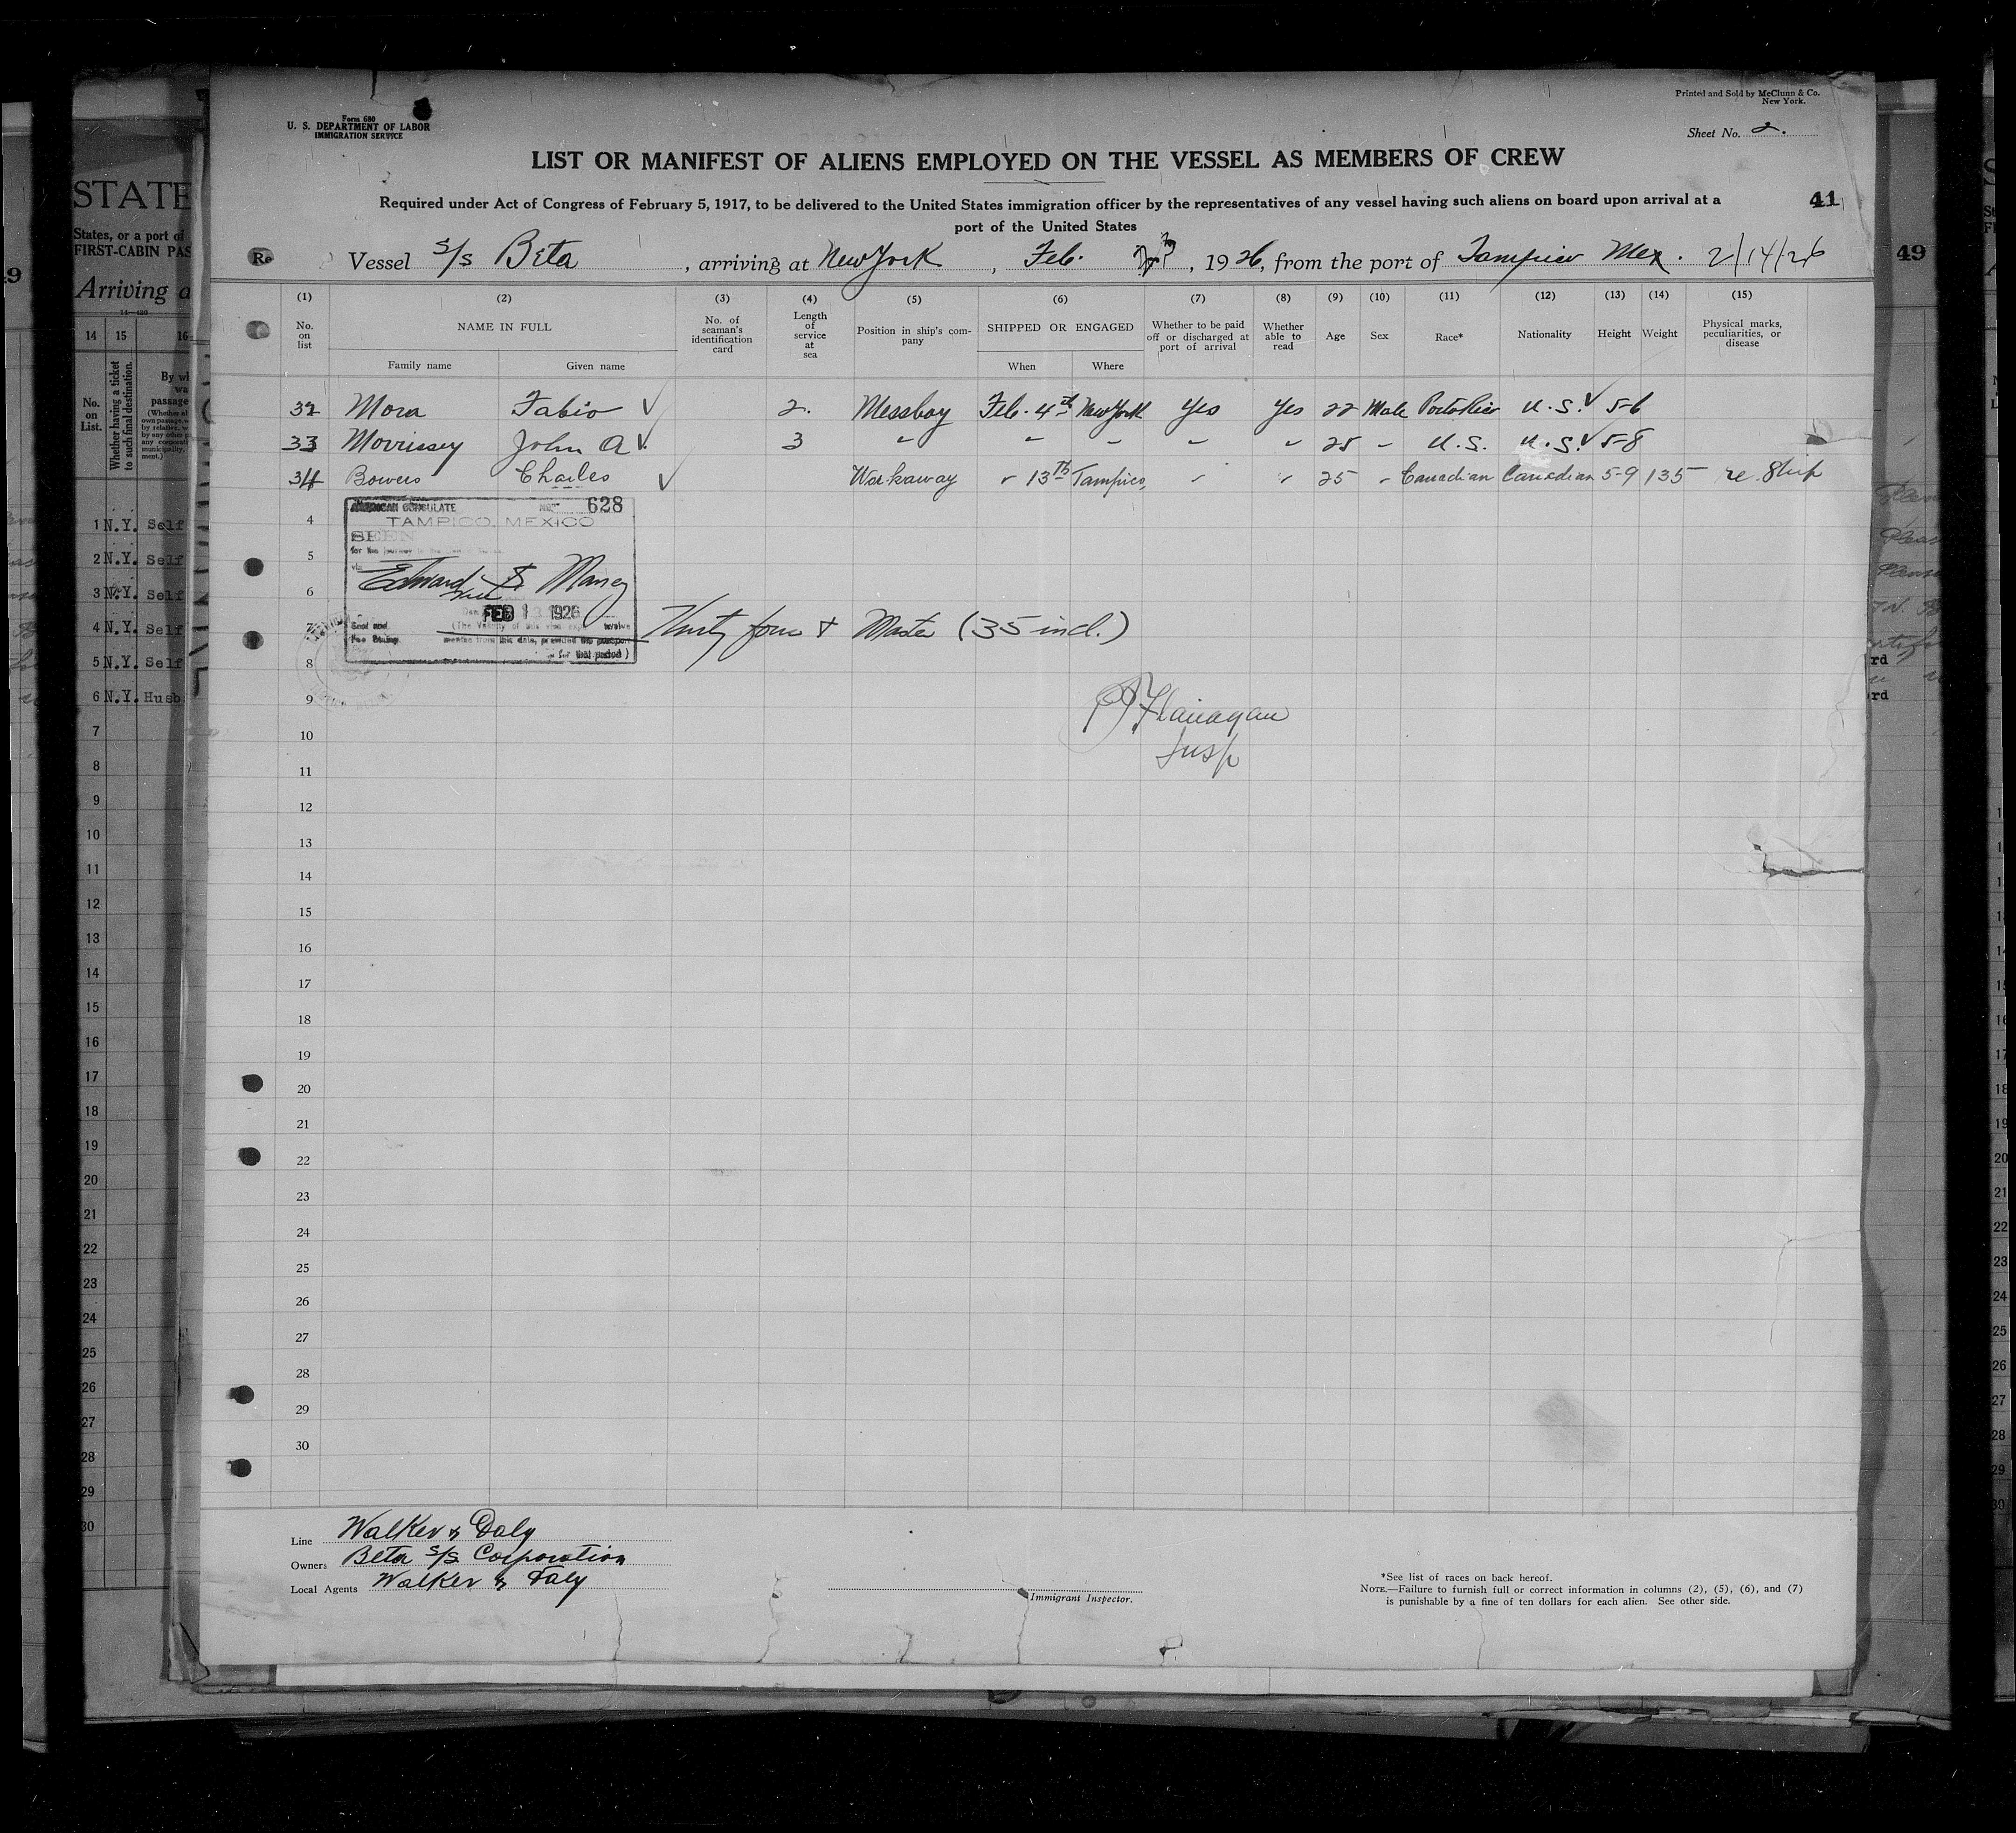 Form 680
U. S. DEPARTMENT OF LABOR
IMMIGRATION SERVICE
Printed and Sold by McClunn & Co.
New York.
Sheet No. 2.
LIST OR MANIFEST OF ALIENS EMPLOYED ON THE VESSEL AS MEMBERS OF CREW
Required under Act of Congress of February 5, 1917, to be delivered to the United States immigration officer by the representatives of any vessel having such aliens on board upon arrival at a
port of the United States
41
Vessel S/S Beta, arriving at New York, Feb. , 1926, from the port of Tampico Mex. 2/14/26
(1) (2) (3) (4) (5) (6) (7) (8) (9) (10) (11) (12) (13) (14) (15)
No. on list
NAME IN FULL
Family name Given name
No. of seaman's identification card
Length of service at sea
Position in ship's company
SHIPPED OR ENGAGED
When Where
Whether to be paid off or discharged at port of arrival
Whether able to read
Age
Sex
Race*
Nationality
Height
Weight
Physical marks, peculiarities, or disease
32 Mora Fabio √ 2. Messboy Feb. 4th New York Yes Yes 22 Male Porto Rico U.S. √ 5-6
33 Morrissey John A √. 3 " " " " " 25 " U.S. U.S. √ 5-8
34 Bowers Charles √ Workaway " 13th Tampico, " " 25 " Canadian Canadian 5-9 135 re Ship
AMERICAN CONSULATE No. 628
TAMPICO, MEXICO
SEEN
Edward S Maney
FEB 13 1926
4
5
6
7
8
9
10
11
12
13
14
15
16
17
18
19
20
21
22
23
24
25
26
27
28
29
30
Thirty four & Master (35 incl.)
Flanagan
Insp
Line Walker & Daly
Owners Beta S/S Corporation
Local Agents Walker & Daly
Immigrant Inspector.
*See list of races on back hereof.
NOTE.—Failure to furnish full or correct information in columns (2), (5), (6), and (7)
is punishable by a fine of ten dollars for each alien. See other side.
STATE
States, or a port of
FIRST-CABIN PAS
Arriving a
14 15 16
No. on List.
Whether having a ticket to such final destination.
1 N.Y. Self
2 N.Y. Self
3 N.Y. Self
4 N.Y. Self
5 N.Y. Self
6 N.Y. Husb
49